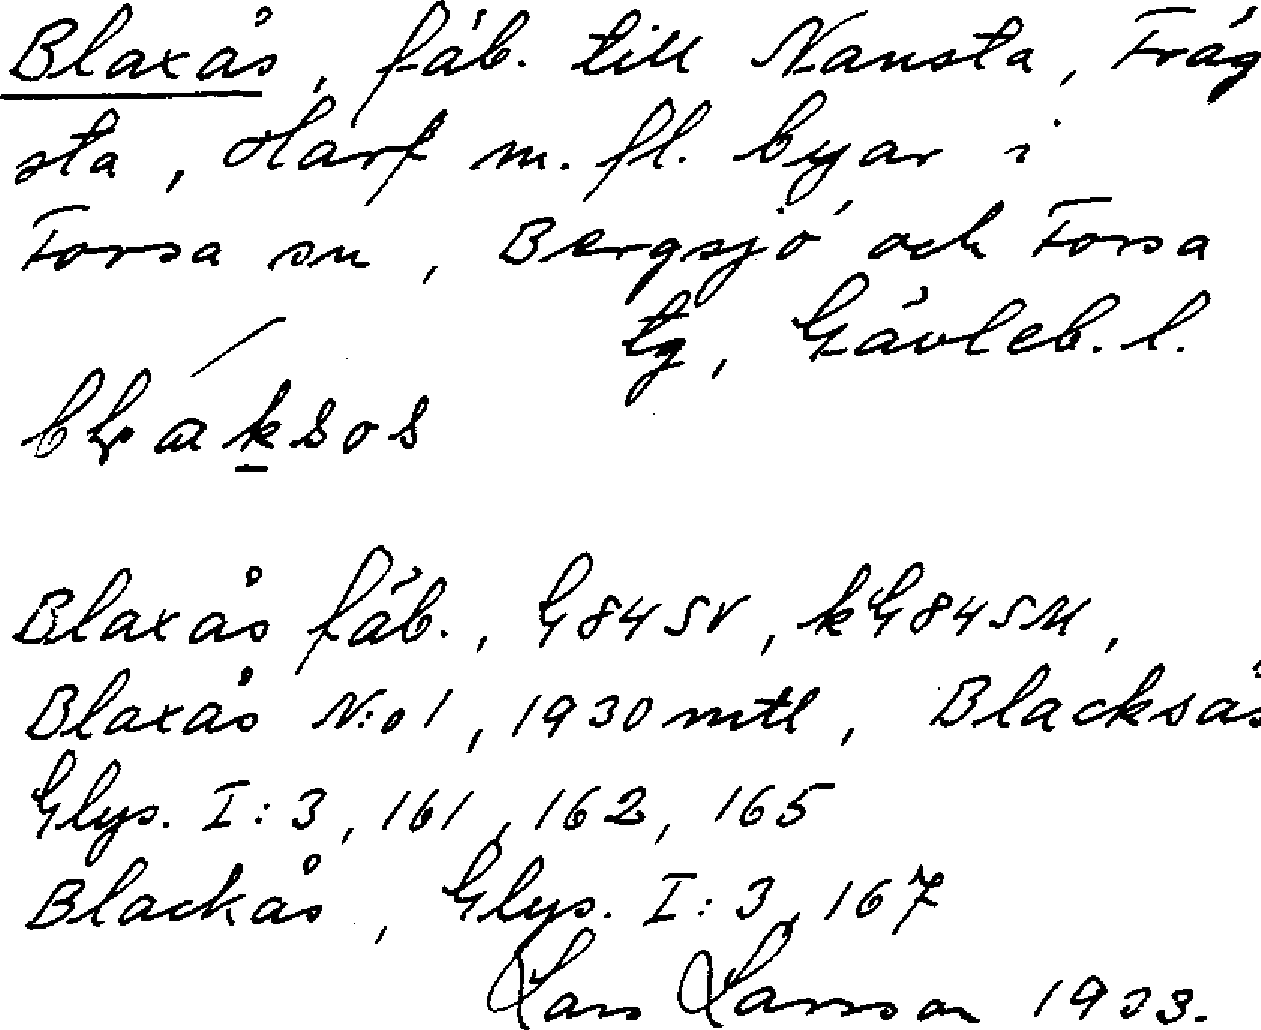 Blaxås, fäb. till Nansta, Fräg
sta, Harf m. fl. byar i
Forsa sn, Bergsjö och Forsa
tg, Gävleb. l.
Blaxås fäb., G84SV, kG84SM,
Blaxås N:o 1, 1930 mtl, Blacksås
Glys. I:3, 161, 162, 165
Blackås, Glys. I:3, 167
Lars Larsson 1933.